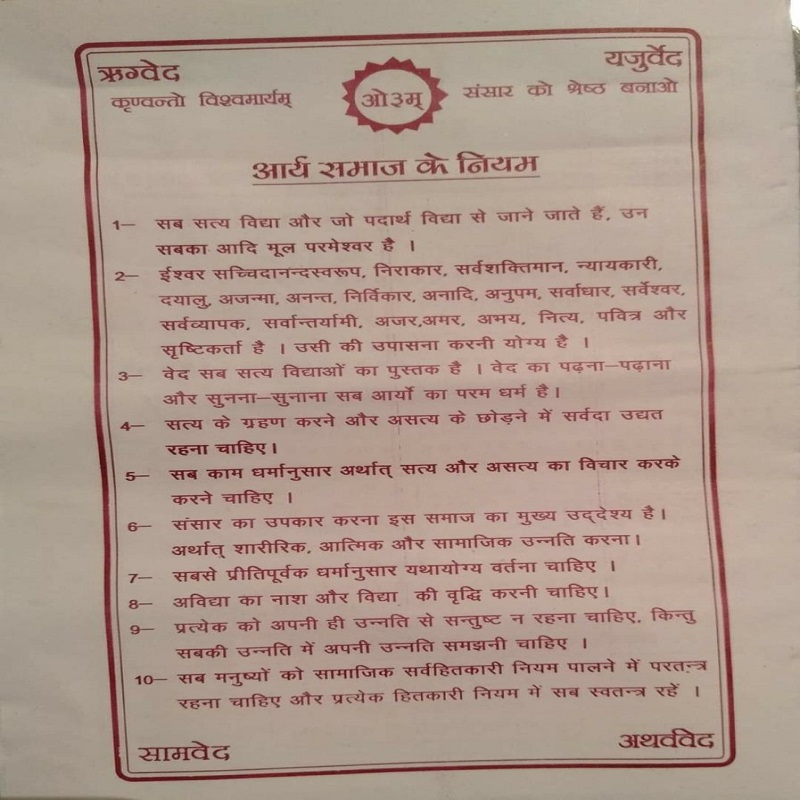 ऋग्वेद
यजुर्वेद
कृण्वन्तो विश्वमार्यम्
ओ३म्
संसार को श्रेष्ठ बनाओ
आर्य समाज के नियम
1– सब सत्य विद्या और जो पदार्थ विद्या से जाने जाते हैं, उन
सबका आदि मूल परमेश्वर है ।
2– ईश्वर सच्चिदानन्दस्वरूप, निराकार, सर्वशक्तिमान, न्यायकारी,
दयालु, अजन्मा, अनन्त, निर्विकार, अनादि, अनुपम, सर्वाधार, सर्वेश्वर,
सर्वव्यापक, सर्वान्तर्यामी, अजर,अमर, अभय, नित्य, पवित्र और
सृष्टिकर्ता है । उसी की उपासना करनी योग्य है ।
3– वेद सब सत्य विद्याओं का पुस्तक है । वेद का पढ़ना–पढ़ाना
और सुनना–सुनाना सब आर्यो का परम धर्म है।
4– सत्य के ग्रहण करने और असत्य के छोड़ने में सर्वदा उद्यत
रहना चाहिए।
5– सब काम धर्मानुसार अर्थात् सत्य और असत्य का विचार करके
करने चाहिए ।
6– संसार का उपकार करना इस समाज का मुख्य उद्देश्य है।
अर्थात् शारीरिक, आत्मिक और सामाजिक उन्नति करना।
7– सबसे प्रीतिपूर्वक धर्मानुसार यथायोग्य वर्तना चाहिए ।
8– अविद्या का नाश और विद्या की वृद्धि करनी चाहिए।
9– प्रत्येक को अपनी ही उन्नति से सन्तुष्ट न रहना चाहिए, किन्तु
सबकी उन्नति में अपनी उन्नति समझनी चाहिए ।
10– सब मनुष्यों को सामाजिक सर्वहितकारी नियम पालने में परतन्त्र
रहना चाहिए और प्रत्येक हितकारी नियम में सब स्वतन्त्र रहें ।
सामवेद
अथर्ववेद